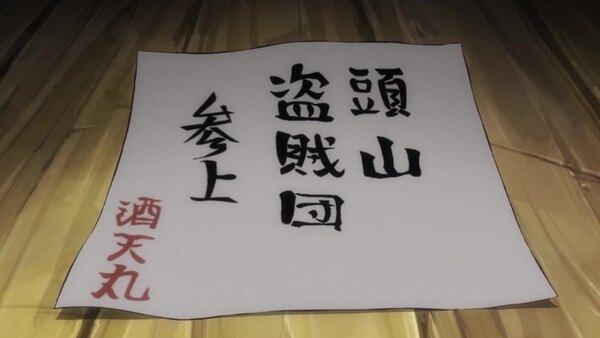 頭山
盗賊団
参上
酒天丸